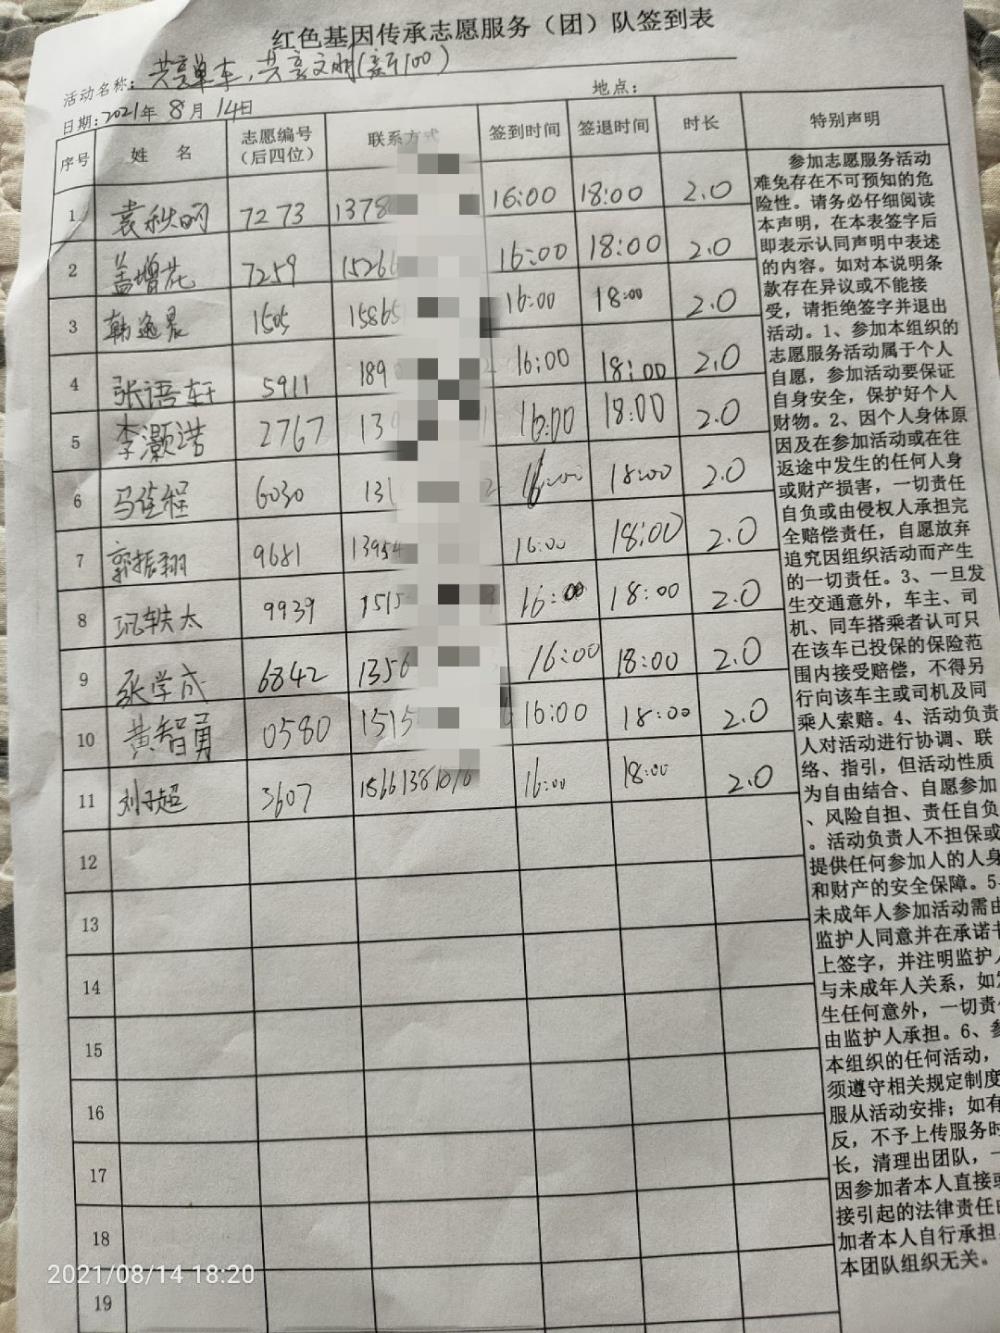 红色基因传承志愿服务（团）队签到表
活动名称：共享单车，共享文明
日期：2021年 8月 14日
地点：
序号 姓 名 志愿编号（后四位） 联系方式 签到时间 签退时间 时长 特别声明
1 7273 1378 16:00 18:00 2.0
2 盖增花 7259 1526 16:00 18:00 2.0
3 韩逸晨 1505 15865 16:00 18:00 2.0
4 张语轩 5911 189 16:00 18:00 2.0
5 李灏浩 2767 13 16:00 18:00 2.0
6 6030 131 16:00 18:00 2.0
7 郭振翔 9681 13954 16:00 18:00 2.0
8 巩轶太 9939 1515 16:00 18:00 2.0
9 张学成 6842 1356 16:00 18:00 2.0
10 黄智勇 0580 1515 16:00 18:00 2.0
11 刘子超 3607 16:00 18:00 2.0
12
13
14
15
16
17
18
19
参加志愿服务活动
难免存在不可预知的危
险性。请务必仔细阅读
本声明，在本表签字后
即表示认同声明中表述
的内容。如对本说明条
款存在异议或不能接
受，请拒绝签字并退出
活动。1、参加本组织的
志愿服务活动属于个人
自愿，参加活动要保证
自身安全，保护好个人
财物。2、因个人身体原
因及在参加活动或在往
返途中发生的任何人身
或财产损害，一切责任
自负或由侵权人承担完
全赔偿责任，自愿放弃
追究因组织活动而产生
的一切责任。3、一旦发
生交通意外，车主、司
机、同车搭乘者认可只
在该车已投保的保险范
围内接受赔偿，不得另
行向该车主或司机及同
乘人索赔。4、活动负责
人对活动进行协调、联
络、指引，但活动性质
为自由结合、自愿参加
、风险自担、责任自负
。活动负责人不担保或
提供任何参加人的人身
和财产的安全保障。5
未成年人参加活动需由
监护人同意并在承诺书
上签字，并注明监护人
与未成年人关系，如发
生任何意外，一切责
由监护人承担。6、参
本组织的任何活动，
须遵守相关规定制度
服从活动安排；如有
反，不予上传服务时
长，清理出团队，一
因参加者本人直接或
接引起的法律责任由
加者本人自行承担，
本团队组织无关。
2021/08/14 18:20